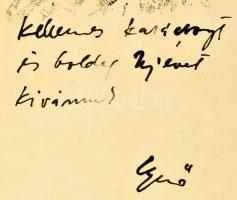 Kellemes karácsonyt
és boldog Újévet
kívánunk
Ernő